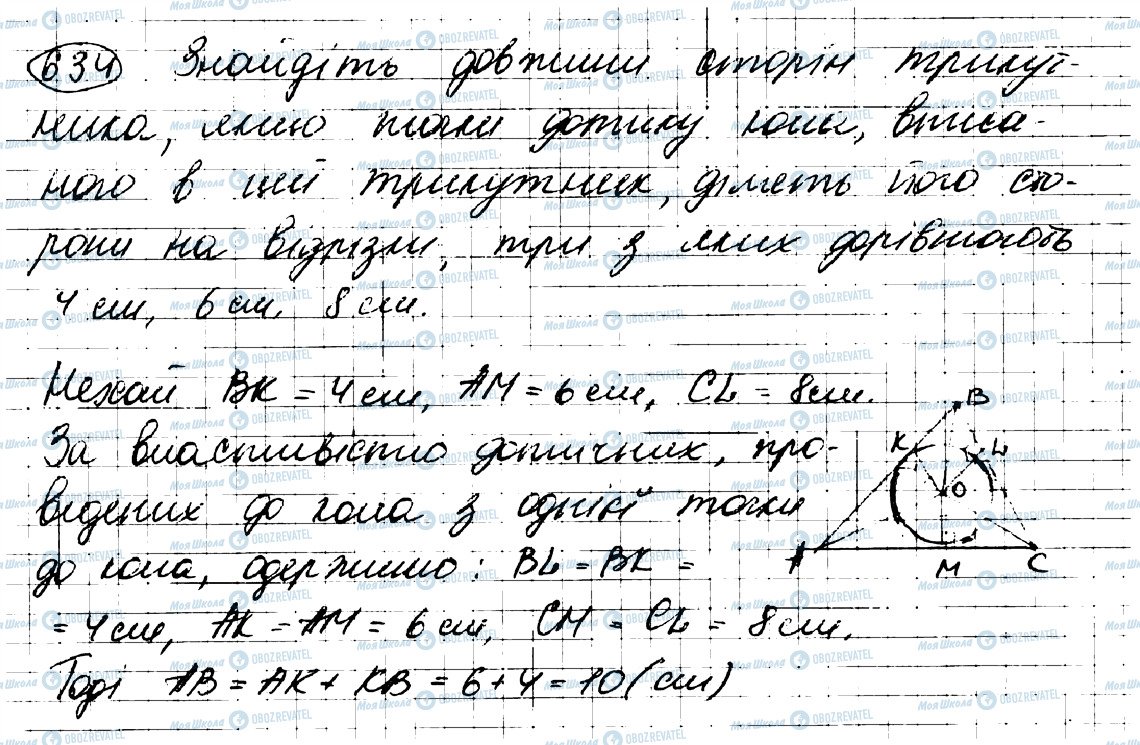 634 Знайдіть довжини сторін трикут-
ника, якщо точки дотику кола, вписа-
ного в цей трикутник, ділять його сто-
рони на відрізки, три з яких дорівнюють
4 см, 6 см, 8 см.
Нехай BK = 4 см, AM = 6 см, CL = 8 см.
За властивістю дотичних, про-
ведених до кола з однієї точки
до кола, одержимо: BL = BK =
= 4 см, AK = AM = 6 см, CM = CL = 8 см.
Тоді AB = AK + KB = 6 + 4 = 10 (см)
B
K L
O
A M C
Моя Школа OBOZREVATEL